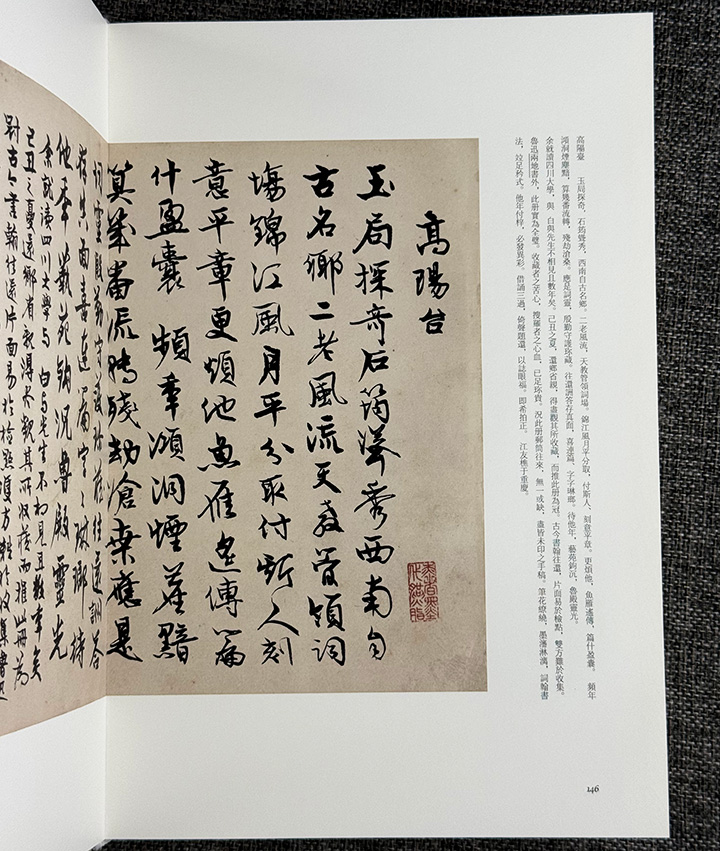 高陽臺　玉局探奇，石筠聳秀，西南自古名鄉。二老風流，天教管領詞場。錦江風月平分取，付斯人、刻意平章。更煩他，魚雁遙傳，篇什盈囊。　頻年
澒洞煙塵黯，算幾番流轉，殘劫滄桑。應是詞靈，殷勤守護珍藏。往還詶答存真面，喜連篇、字字琳瑯。待他年，藝苑鉤沉，魯殿靈光。
余就讀四川大學，與　白與先生不相見且數年矣。己丑之夏，還鄉省親，得盡觀其所收藏，而推此册為冠。古今書翰往還，片面易於檢點，雙方難於收集。
魯迅兩地書外，此册實為全璧。收藏者之苦心，搜羅者之心血，已足珍貴。況此册郵筒往來，無一或缺，盡皆未印之手稿。筆花繚繞，墨瀋淋漓，詞翰書
法，竝足矜式。他年付梓，必發異彩。借誦三過，倚聲題還，以誌眼福。即希拍正。　江友樵于重慶。
高陽台
玉局探奇石筠聳秀西南自
古名鄉二老風流天教管領詞
塲錦江風月平分取付斯人刻
意平章更煩他魚雁遙傳篇
什盈囊　頻年澒洞煙塵黯
算幾番流轉殘劫滄桑應是
詞靈殷勤守護珍藏往還詶答
存真面喜連篇字字琳瑯待
他年藝苑鉤沉魯殿靈光
余就讀四川大學与　白与先生不相見且數年矣
己丑之夏還鄉省親得盡觀其所收藏而推此冊為
冠古今書翰往還片面易於檢點雙方難於收集魯迅
146